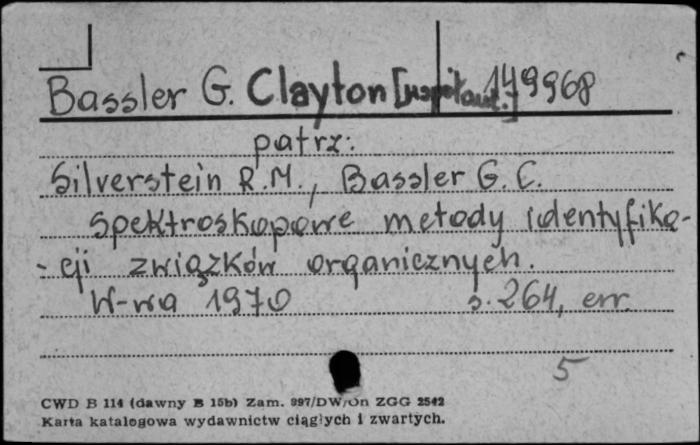 Bassler G. Clayton [współaut.] 149968
patrz:
Silverstein R.M., Bassler G. C.
Spektroskopowe metody identyfika-
-cji związków organicznych.
W-wa 1970 s. 264, err.
5
CWD B 114 (dawny B 15b) Zam. 997/DW/On ZGG 2542
Karta katalogowa wydawnictw ciągłych i zwartych.